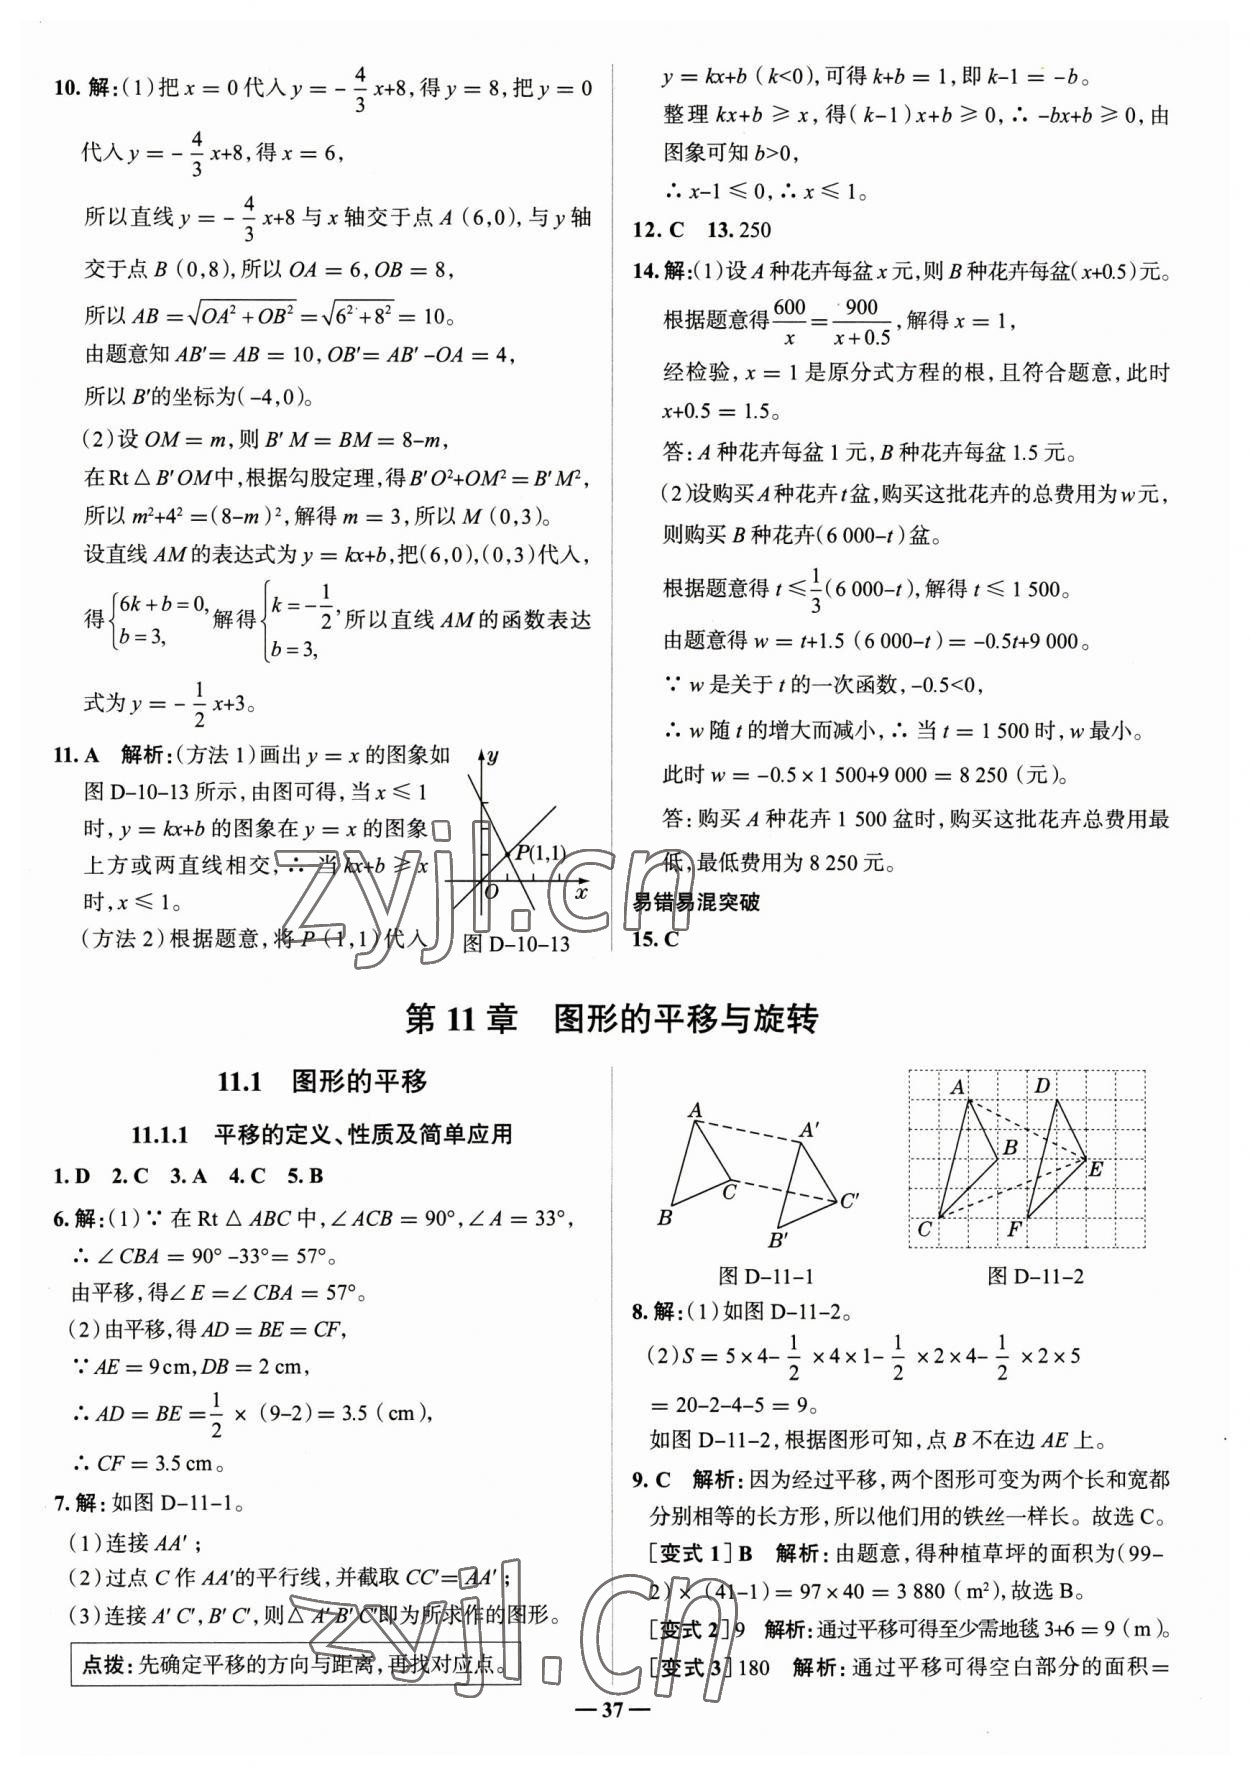 10. 解:(1)把 x = 0代入 y = -4/3 x+8,得 y = 8,把 y = 0
代入 y = -4/3 x+8,得 x = 6,
所以直线 y = -4/3 x+8 与 x 轴交于点 A (6,0),与 y 轴
交于点 B (0,8),所以 OA = 6,OB = 8,
所以 AB = √(OA²+OB²) = √(6²+8²) = 10。
由题意知 AB′= AB = 10,OB′= AB′-OA = 4,
所以 B′的坐标为(-4,0)。
(2)设 OM = m,则 B′M = BM = 8-m,
在Rt△B′OM中,根据勾股定理,得B′O²+OM²=B′M²,
所以 m²+4²=(8-m)²,解得 m = 3,所以 M (0,3)。
设直线 AM 的表达式为 y = kx+b,把(6,0),(0,3)代入,
得{6k+b=0, b=3, 解得{k=-1/2, b=3, 所以直线 AM 的函数表达
式为 y = -1/2 x+3。
11. A 解析:(方法 1)画出 y = x 的图象如
图 D-10-13 所示,由图可得,当 x ≤ 1
时,y = kx+b 的图象在 y = x 的图象
上方或两直线相交,∴ 当 kx+b ≥ x
时,x ≤ 1。
(方法 2)根据题意,将 P (1,1)代入
y
P(1,1)
O
x
图 D-10-13
y = kx+b (k<0),可得 k+b = 1,即 k-1 = -b。
整理 kx+b ≥ x,得(k-1)x+b ≥ 0,∴ -bx+b ≥ 0,由
图象可知 b>0,
∴ x-1 ≤ 0,∴ x ≤ 1。
12. C 13. 250
14. 解:(1)设 A 种花卉每盆 x 元,则 B 种花卉每盆(x+0.5)元。
根据题意得 600/x = 900/(x+0.5),解得 x = 1,
经检验,x = 1 是原分式方程的根,且符合题意,此时
x+0.5 = 1.5。
答:A 种花卉每盆 1 元,B 种花卉每盆 1.5 元。
(2)设购买A种花卉t盆,购买这批花卉的总费用为w元,
则购买 B 种花卉(6 000-t)盆。
根据题意得 t ≤ 1/3(6 000-t),解得 t ≤ 1 500。
由题意得 w = t+1.5 (6 000-t) = -0.5t+9 000。
∵ w 是关于 t 的一次函数,-0.5<0,
∴ w 随 t 的增大而减小,∴ 当 t = 1 500 时,w 最小。
此时 w = -0.5 × 1 500+9 000 = 8 250 (元)。
答:购买 A 种花卉 1 500 盆时,购买这批花卉总费用最
低,最低费用为 8 250 元。
易错易混突破
15. C
第 11 章 图形的平移与旋转
11.1 图形的平移
11.1.1 平移的定义、性质及简单应用
1. D 2. C 3. A 4. C 5. B
6. 解:(1)∵ 在 Rt△ABC 中,∠ACB = 90°,∠A = 33°,
∴ ∠CBA = 90°-33°= 57°。
由平移,得∠E =∠CBA = 57°。
(2)由平移,得 AD = BE = CF,
∵ AE = 9 cm,DB = 2 cm,
∴ AD = BE =1/2 × (9-2)= 3.5 (cm),
∴ CF = 3.5 cm。
7. 解:如图 D-11-1。
(1)连接 AA′;
(2)过点 C 作 AA′的平行线,并截取 CC′= AA′;
(3)连接 A′C′,B′C′,则△A′B′C′即为所求作的图形。
点拨:先确定平移的方向与距离,再找对应点。
A
A′
C
C′
B
B′
图 D-11-1
A
D
B
E
C
F
图 D-11-2
8. 解:(1)如图 D-11-2。
(2)S = 5 × 4-1/2 × 4 × 1-1/2 × 2 × 4-1/2 × 2 × 5
= 20-2-4-5 = 9。
如图 D-11-2,根据图形可知,点 B 不在边 AE 上。
9. C 解析:因为经过平移,两个图形可变为两个长和宽都
分别相等的长方形,所以他们用的铁丝一样长。故选 C。
[变式 1]B 解析:由题意,得种植草坪的面积为(99-
2)×(41-1)= 97 × 40 = 3 880 (m²),故选 B。
[变式 2]9 解析:通过平移可得至少需地毯 3+6 = 9 (m)。
[变式 3]180 解析:通过平移可得空白部分的面积 =
— 37 —
zyjl.cn
zyjl.cn